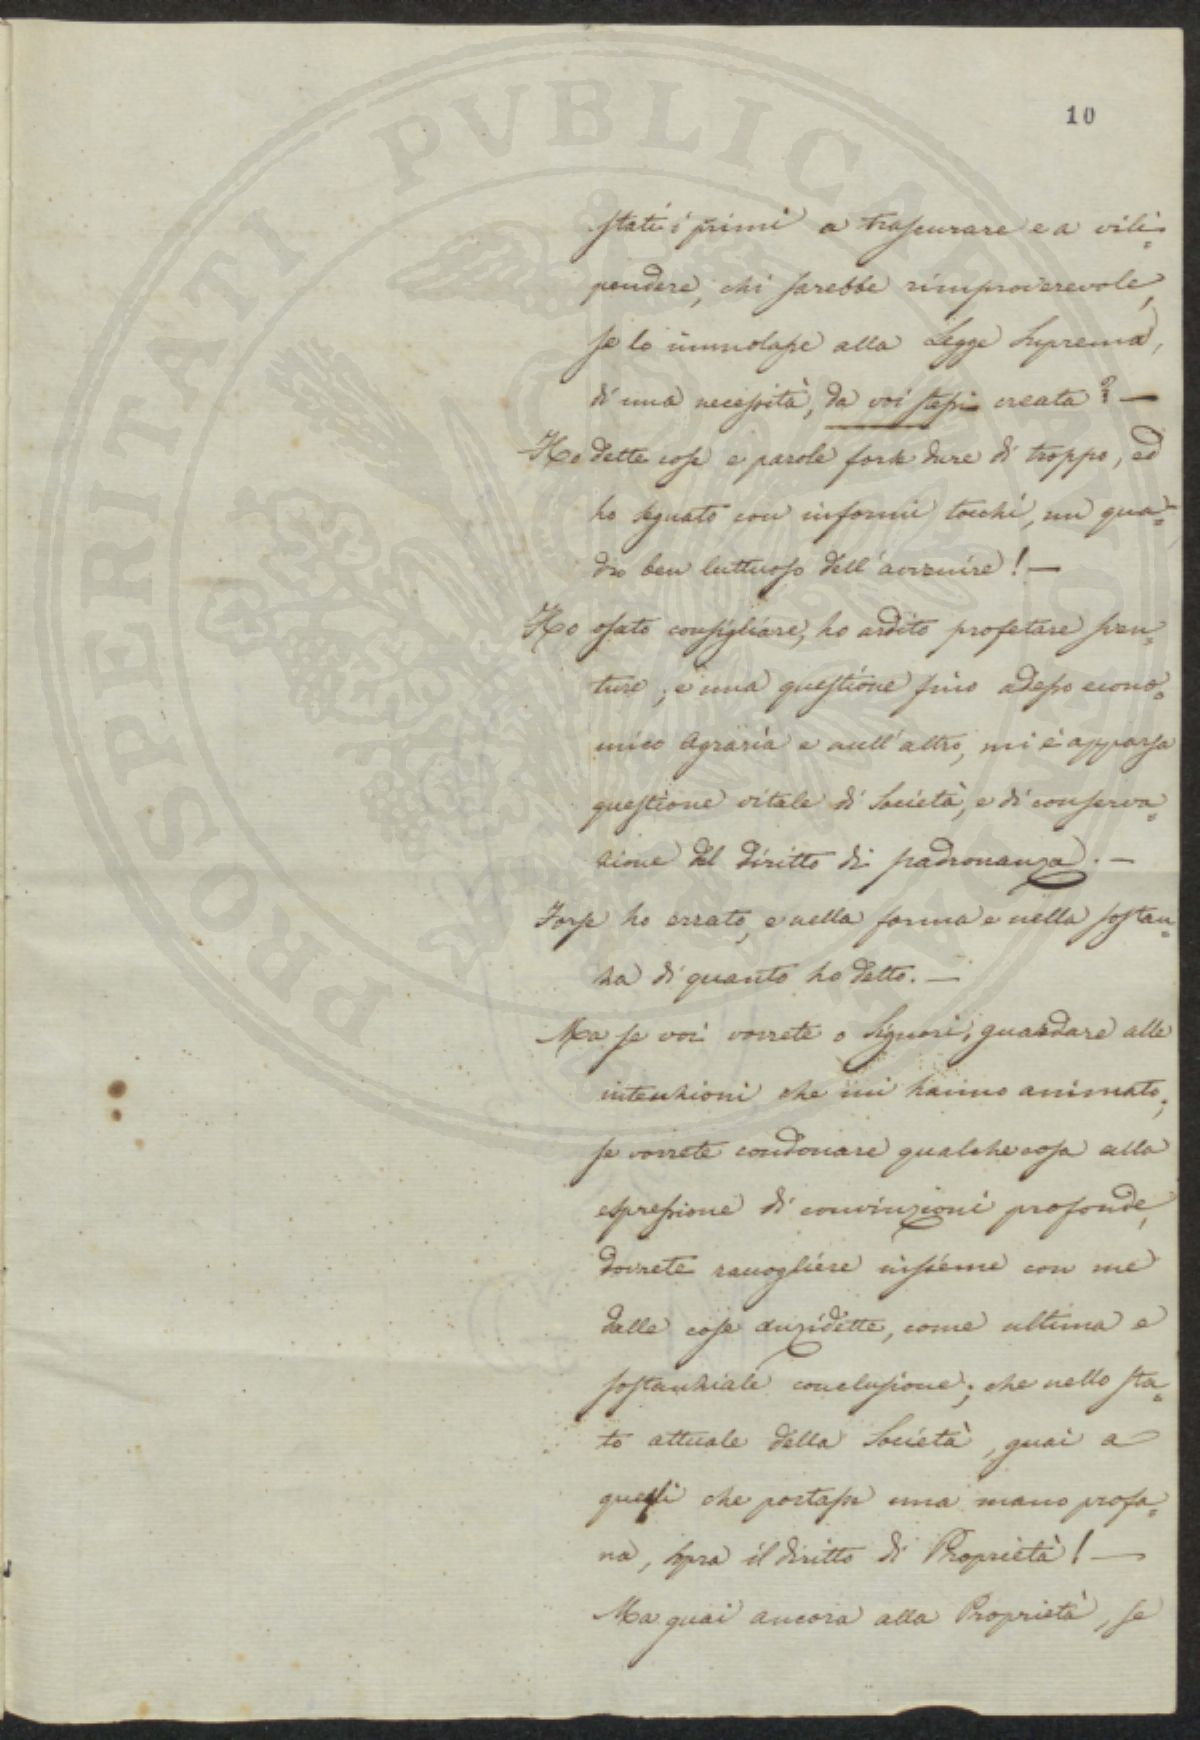 10
stati i primi a trascurare e a vili=
pendere, chi sarebbe rimproverevole,
se lo immolasse alla Legge Suprema,
di una necessità, da voi stessi creata? —
Ho dette cose e parole forse dure di troppo, ed
ho segnato con informi tocchi, un qua=
dro ben luttuoso dell'avvenire! —
Ho osato consigliare, ho ardito profetare sven=
ture; e una questione fino adesso econo=
mico Agraria e null'altro, mi è apparsa
questione vitale di Società, e di conserva=
zione del diritto di padronanza. —
Forse ho errato, e nella forma e nella sostan=
za di quanto ho detto. —
Ma se voi vorrete o Signori, guardare alle
intenzioni che mi hanno animato;
se vorrete condonare qualche cosa alla
espressione di convinzioni profonde,
dovrete raccogliere insieme con me
dalle cose anzidette, come ultima e
sostanziale conclusione; che nello sta=
to attuale della Società, guai a
quelli che portasse una mano profa=
na, sopra il diritto di Proprietà! —
Ma guai ancora alla Proprietà, se
PROSPERITATI PVBLICAE AVGENDAE